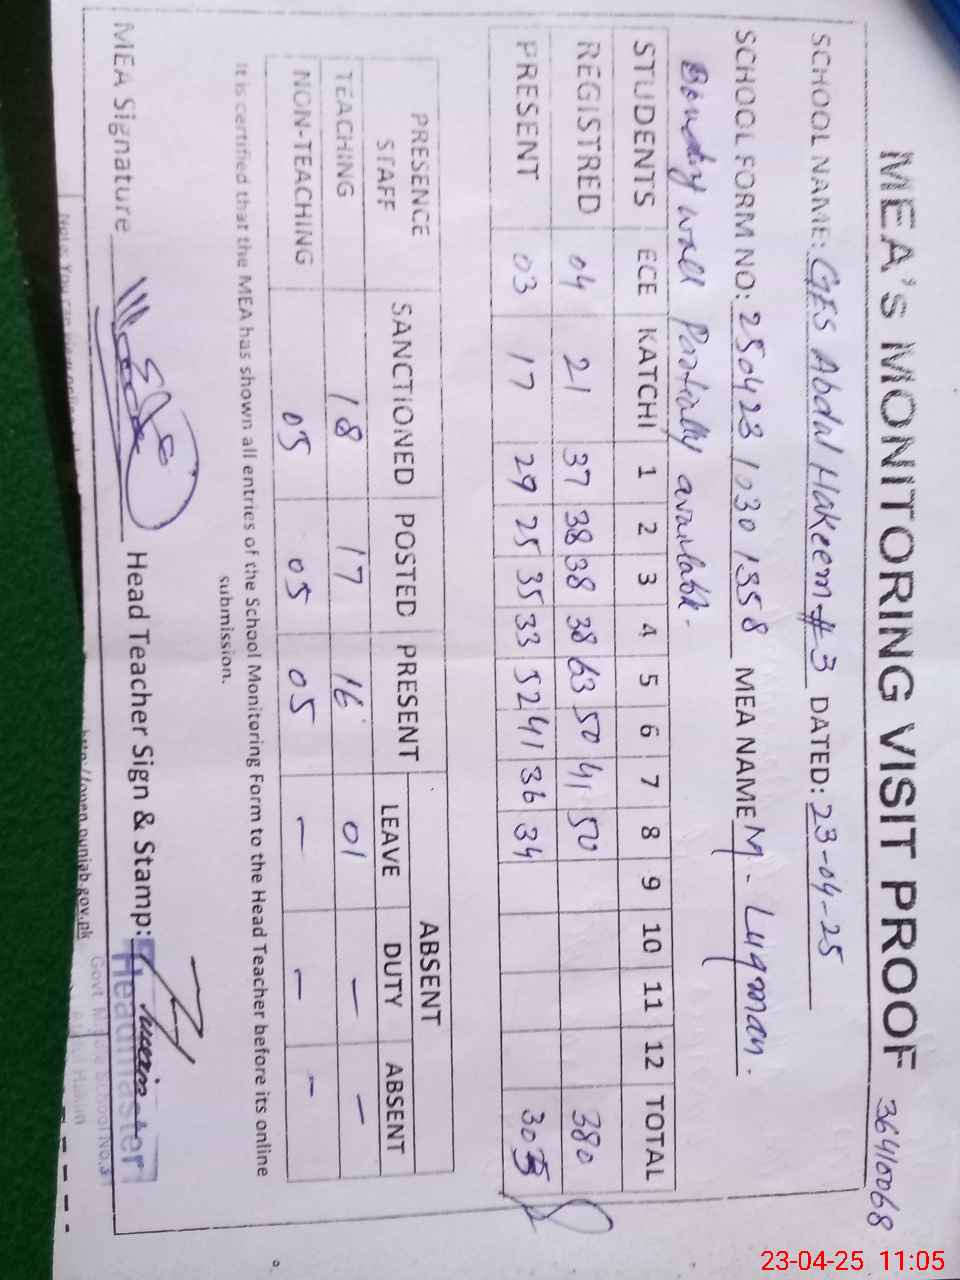 MEA's MONITORING VISIT PROOF 36410068
SCHOOL NAME: GES Abdal Hakeem # 3 DATED: 23-04-25
SCHOOL FORM NO: 250423 1030 1358 MEA NAME M. Luqman.
Boundry wall Partially available.
STUDENTS ECE KATCHI 1 2 3 4 5 6 7 8 9 10 11 12 TOTAL
REGISTRED 04 21 37 38 38 38 63 50 41 50 380
PRESENT 03 17 29 25 35 33 52 41 36 34 305
PRESENCE STAFF SANCTIONED POSTED PRESENT ABSENT
LEAVE DUTY ABSENT
TEACHING 18 17 16 01 - -
NON-TEACHING 05 05 05 - - -
It is certified that the MEA has shown all entries of the School Monitoring Form to the Head Teacher before its online
submission.
MEA Signature Head Teacher Sign & Stamp:
Headmaster
Govt School No.3
Hakim
http://open.punjab.gov.pk
23-04-25 11:05